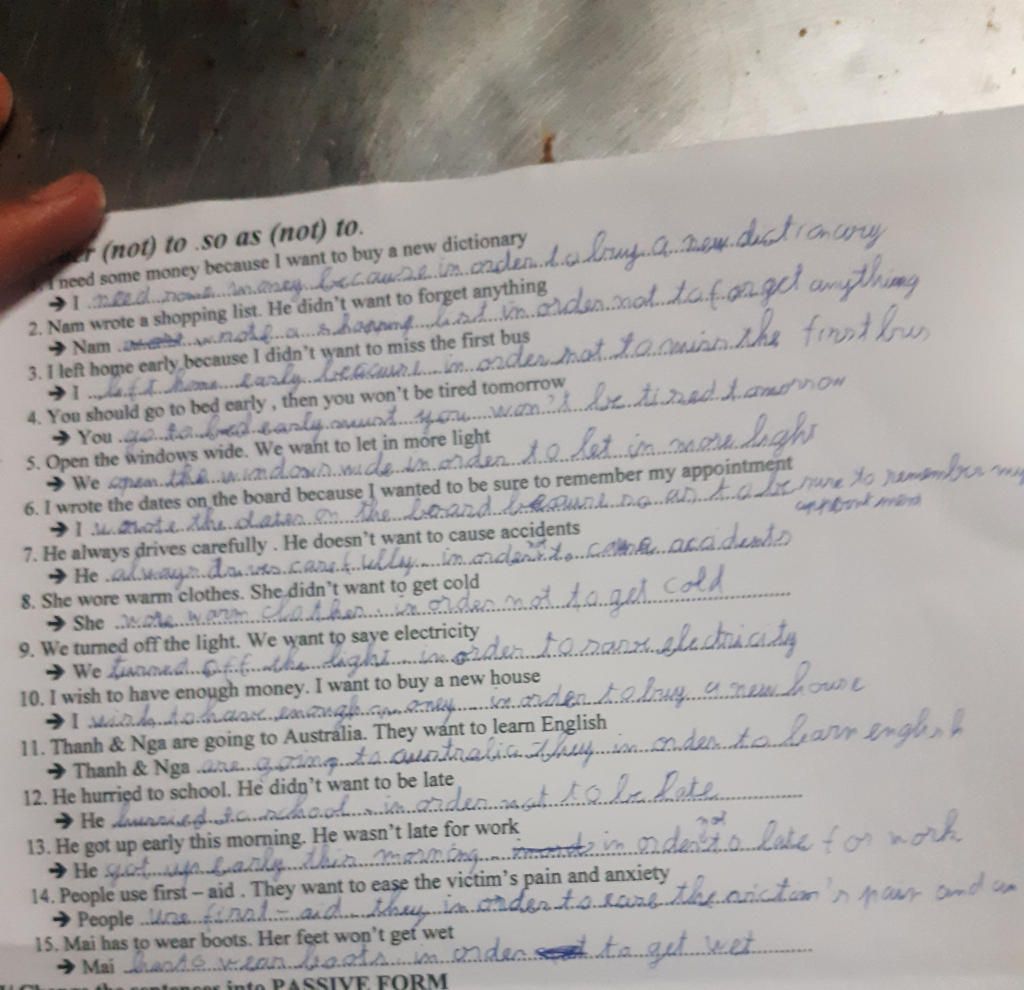 (not) to .so as (not) to.
I need some money because I want to buy a new dictionary
➔ I need some money because in order to buy a new dictionary
2. Nam wrote a shopping list. He didn't want to forget anything
➔ Nam wrote a shopping list in order not to forget anything
3. I left home early because I didn't want to miss the first bus
➔ I left home early in order not to miss the first bus
4. You should go to bed early , then you won't be tired tomorrow
➔ You go to bed early you won't be tired tomorrow
5. Open the windows wide. We want to let in more light
➔ We open the windows wide in order to let in more light
6. I wrote the dates on the board because I wanted to be sure to remember my appointment
➔ I wrote the dates on the board so as to be sure to remember my
7. He always drives carefully . He doesn't want to cause accidents
➔ He always drives carefully in order not to
8. She wore warm clothes. She didn't want to get cold
➔ She wore warm clothes in order not to get cold
9. We turned off the light. We want to save electricity
➔ We turned off the light in order to save electricity
10. I wish to have enough money. I want to buy a new house
➔ I wish to have enough money in order to buy a new house
11. Thanh & Nga are going to Australia. They want to learn English
➔ Thanh & Nga are going to australia they in order to learn english
12. He hurried to school. He didn't want to be late
➔ He hurried to school in order not to be late
13. He got up early this morning. He wasn't late for work
➔ He got up early this morning in order not to late for work
14. People use first – aid . They want to ease the victim's pain and anxiety
➔ People use first - aid they in order to the victim's pain and
15. Mai has to wear boots. Her feet won't get wet
➔ Mai wear boots in order to get wet
the sentences into PASSIVE FORM